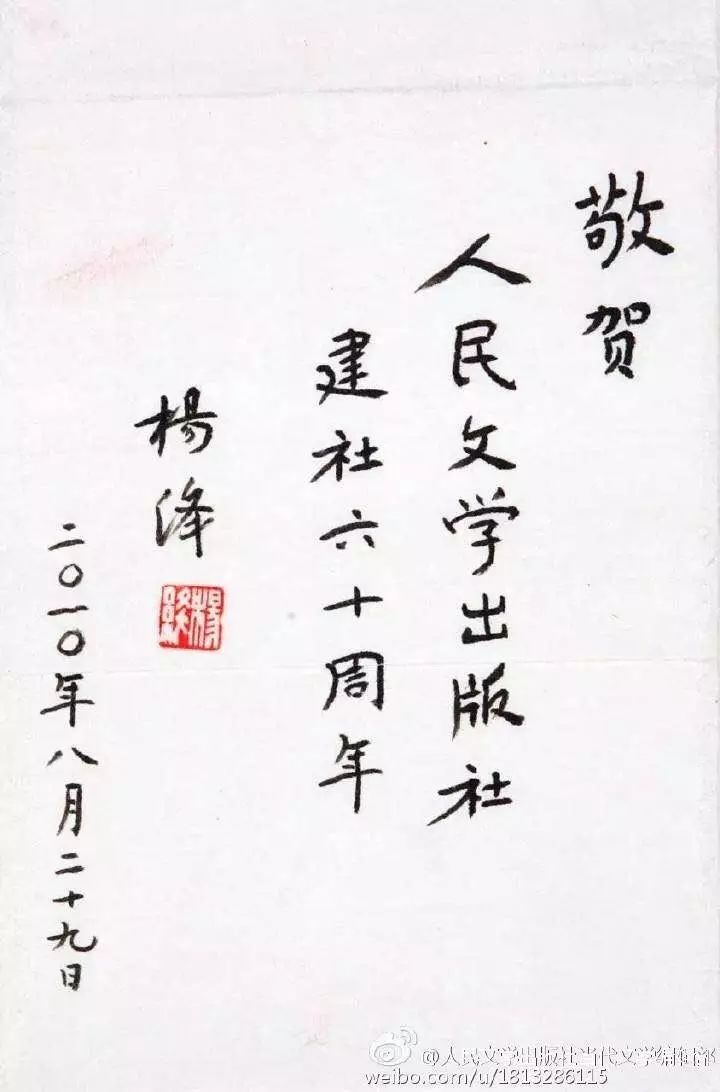 敬贺
人民文学出版社
建社六十周年
楊绛
楊絳
二〇一〇年八月二十九日
@人民文学出版社当代文学编辑部
weibo.com/u/1813286115